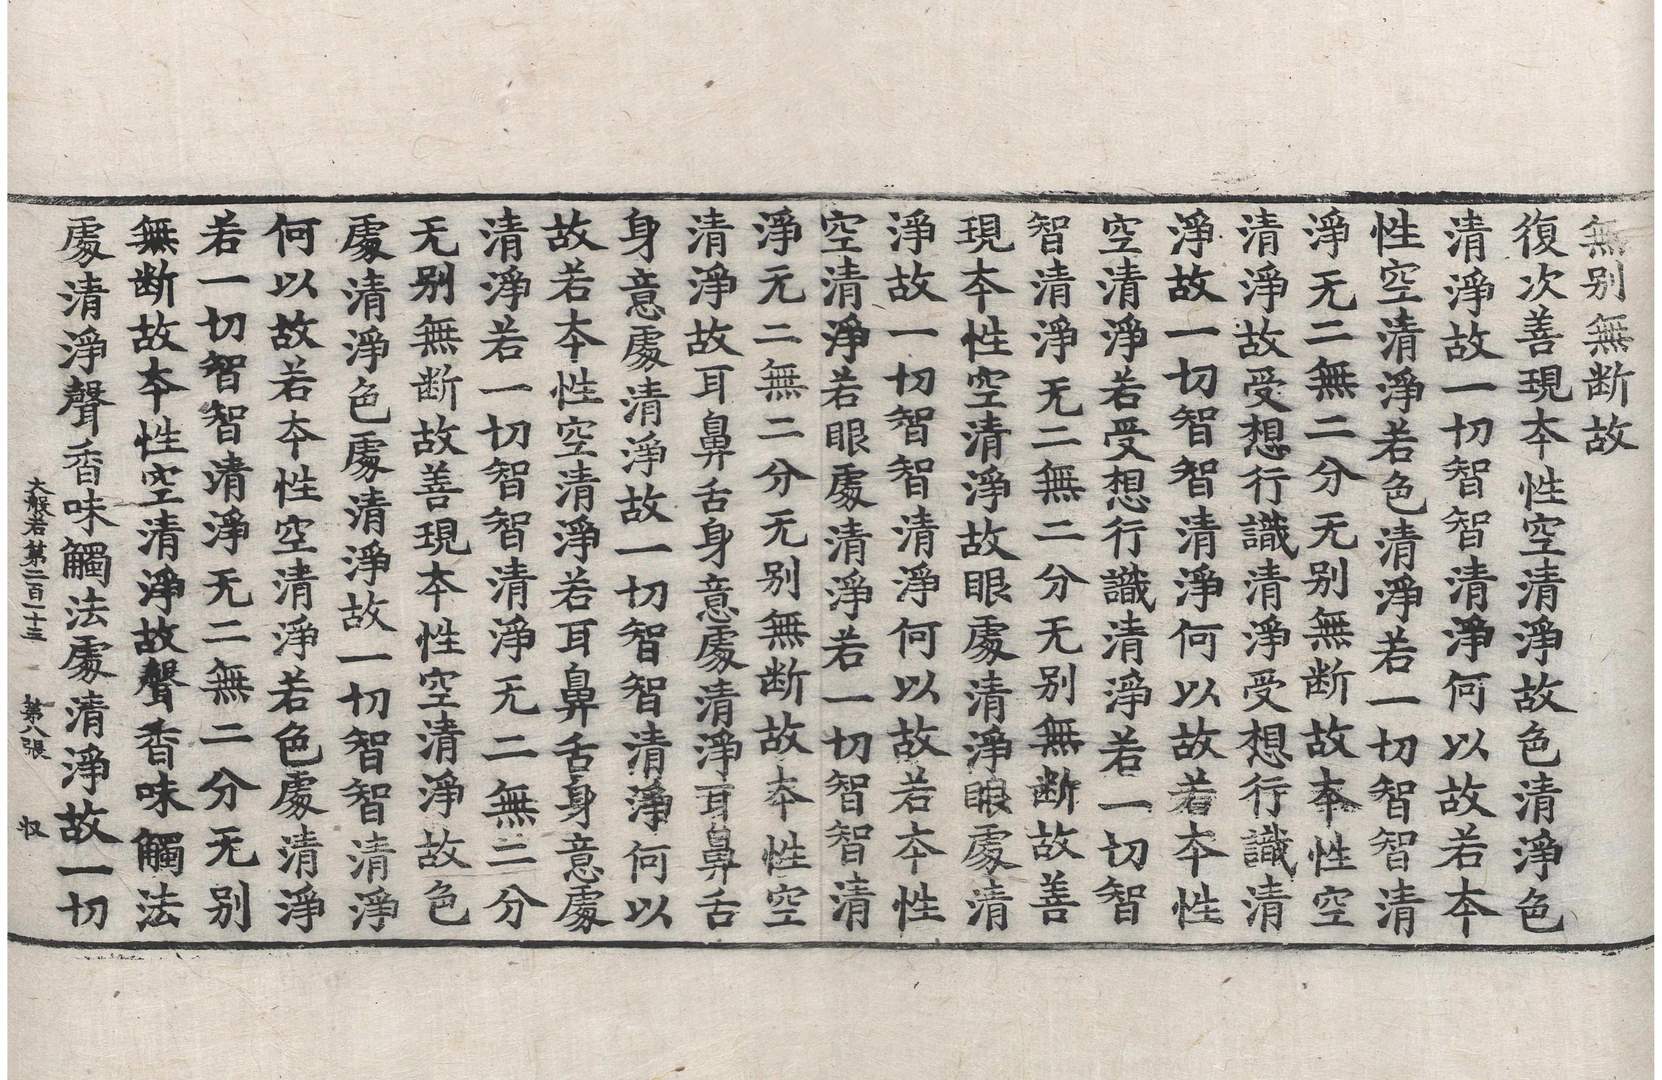 無别無断故
復次善現夲性空清淨故色清淨色
清淨故一切智智清淨何以故若夲
性空清淨若色清淨若一切智智清
淨无二無二分无别無断故夲性空
清淨故受想行識清淨受想行識清
淨故一切智智清淨何以故若夲性
空清淨若受想行識清淨若一切智
智清淨无二無二分无别無断故善
現夲性空清淨故眼䖏清淨眼䖏清
淨故一切智智清淨何以故若夲性
空清淨若眼䖏清淨若一切智智清
淨无二無二分无别無断故夲性空
清淨故耳鼻舌身意䖏清淨耳鼻舌
身意䖏清淨故一切智智清淨何以
故若夲性空清淨若耳鼻舌身意䖏
清淨若一切智智清淨无二無二分
无别無断故善現夲性空清淨故色
䖏清淨色䖏清淨故一切智智清淨
何以故若夲性空清淨若色䖏清淨
若一切智智清淨无二無二分无别
無断故夲性空清淨故聲香味觸法
䖏清淨聲香味觸法䖏清淨故一切
大般若第二百一十三 第八張 収